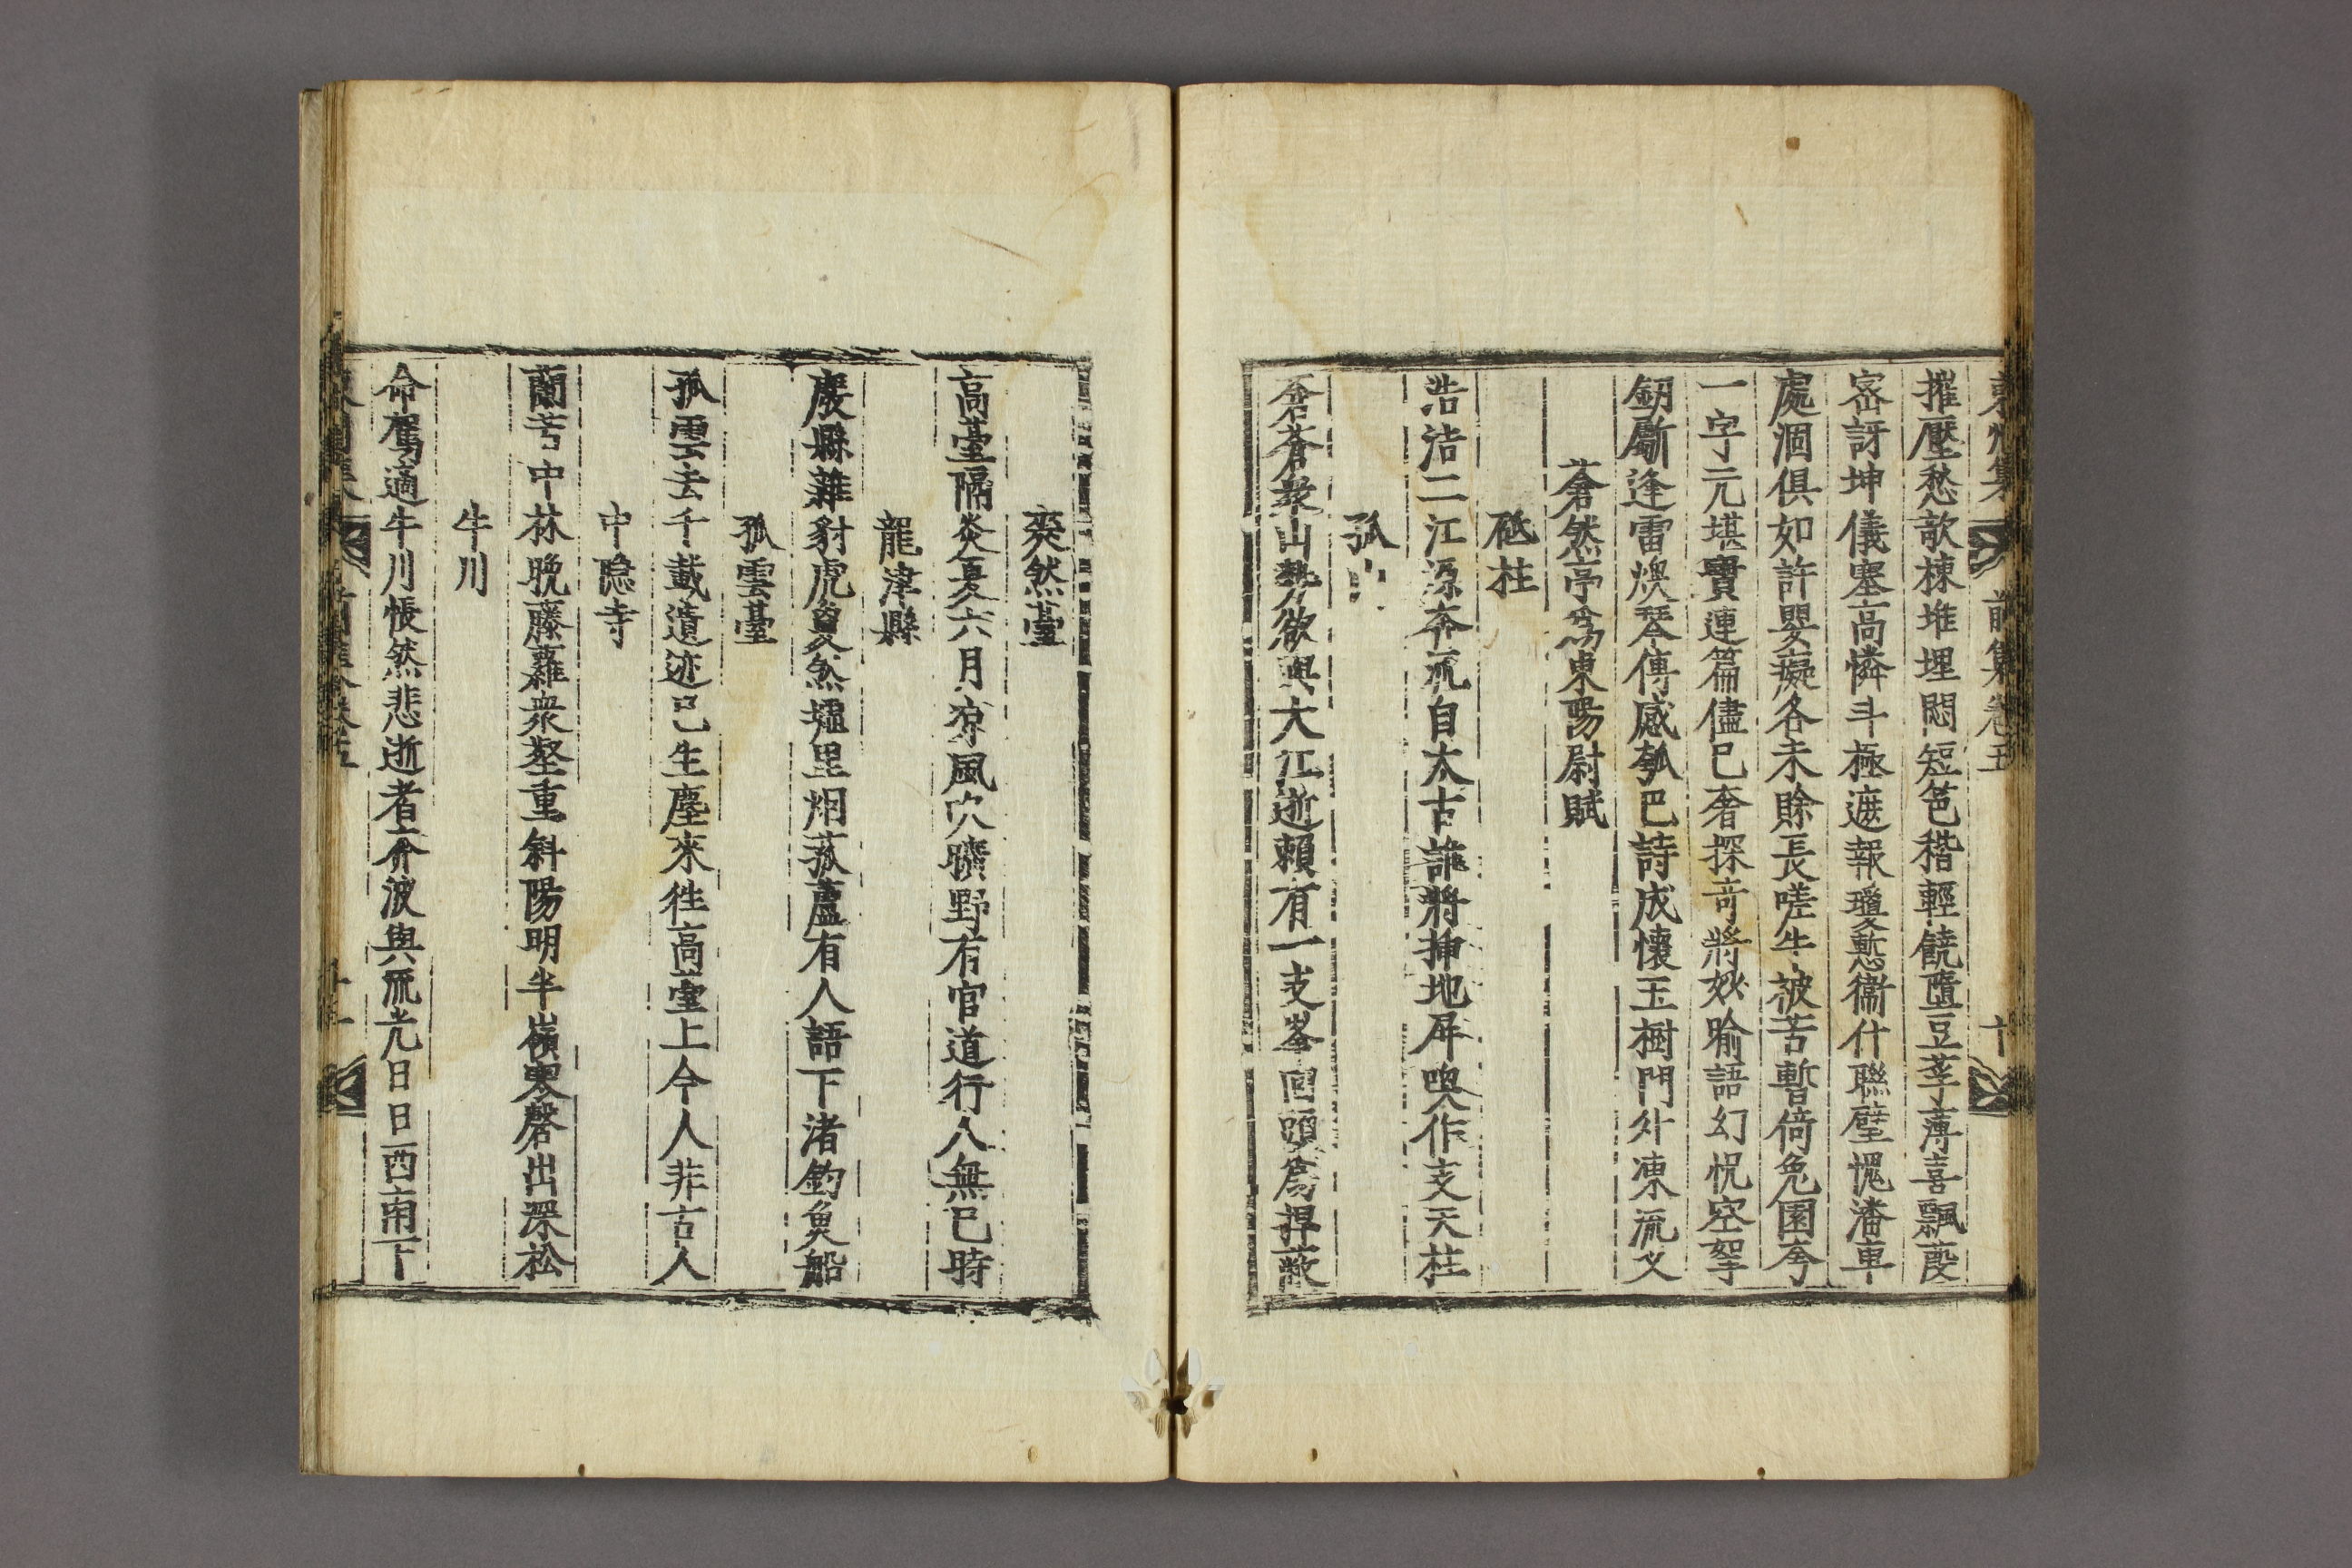 東州集 前集卷五 十
摧壓愁歆棟堆埋悶短笆稭輕饒墮豆莩薄喜飄葭
密訝坤儀塞高憐斗極遮報瓊慙衞什聯璧愧潘車
處涸俱如許嬰癡各未賖長嗟牛被苦暫倚兔園夸
一字元堪寶連篇儘已奢探奇將妙喩語幻怳空拏
釼斸逢雷煥琴傳感瓠巴詩成懷玉樹門外凍流叉
蒼然亭爲東陽尉賦
砥柱
浩浩二江源奔流自太古誰將揷地屛喚作支天柱
孤山
蒼蒼衆山勢欲與大江逝賴有一支峯回頭爲捍蔽
爽然臺
高臺隔炎夏六月凉風穴躋野有官道行人無已時
龍津縣
廢縣雜豺虎夐然墟里烟菰蘆有人語下渚釣魚船
孤雲臺
孤雲去千載遺迹已生塵來徃高臺上今人非古人
中隱寺
蘭若中林晩藤蘿衆壑重斜陽明半嶺寒磬出深松
牛川
命駕適牛川悵然悲逝者奔波與流光日日西南下